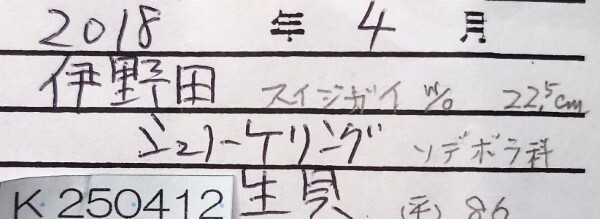 2018 年 4 月
伊野田 スイジガイ w/o 22.5cm
シュノーケリング ソデボラ科
K 250412 生貝 86